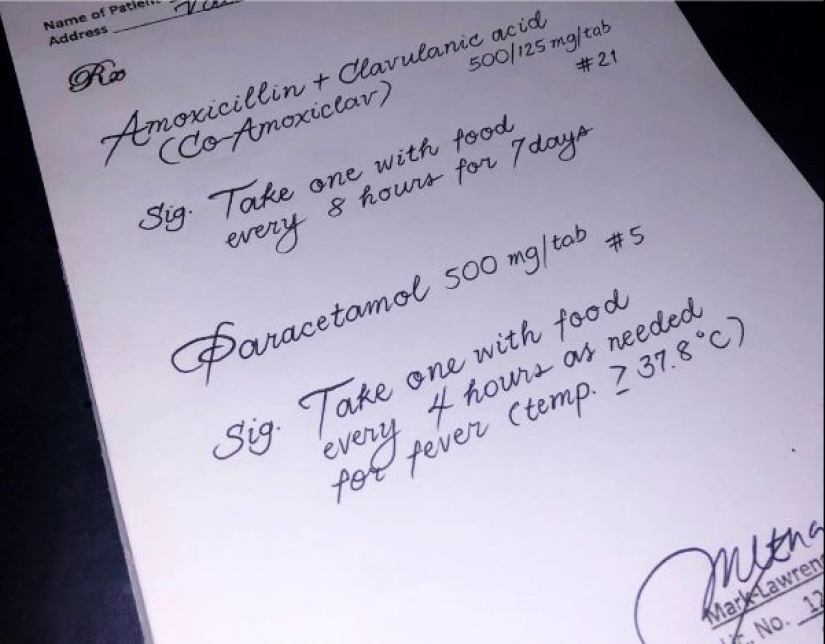 Name of Patient
Address
Rx
Amoxicillin + Clavulanic acid
500/125 mg/tab
(Co-Amoxiclav)
#21
Sig. Take one with food
every 8 hours for 7 days
Paracetamol 500 mg/tab #5
Sig. Take one with food
every 4 hours as needed
for fever (temp. ≥ 37.8°C)
Mark Lawren
No. 12